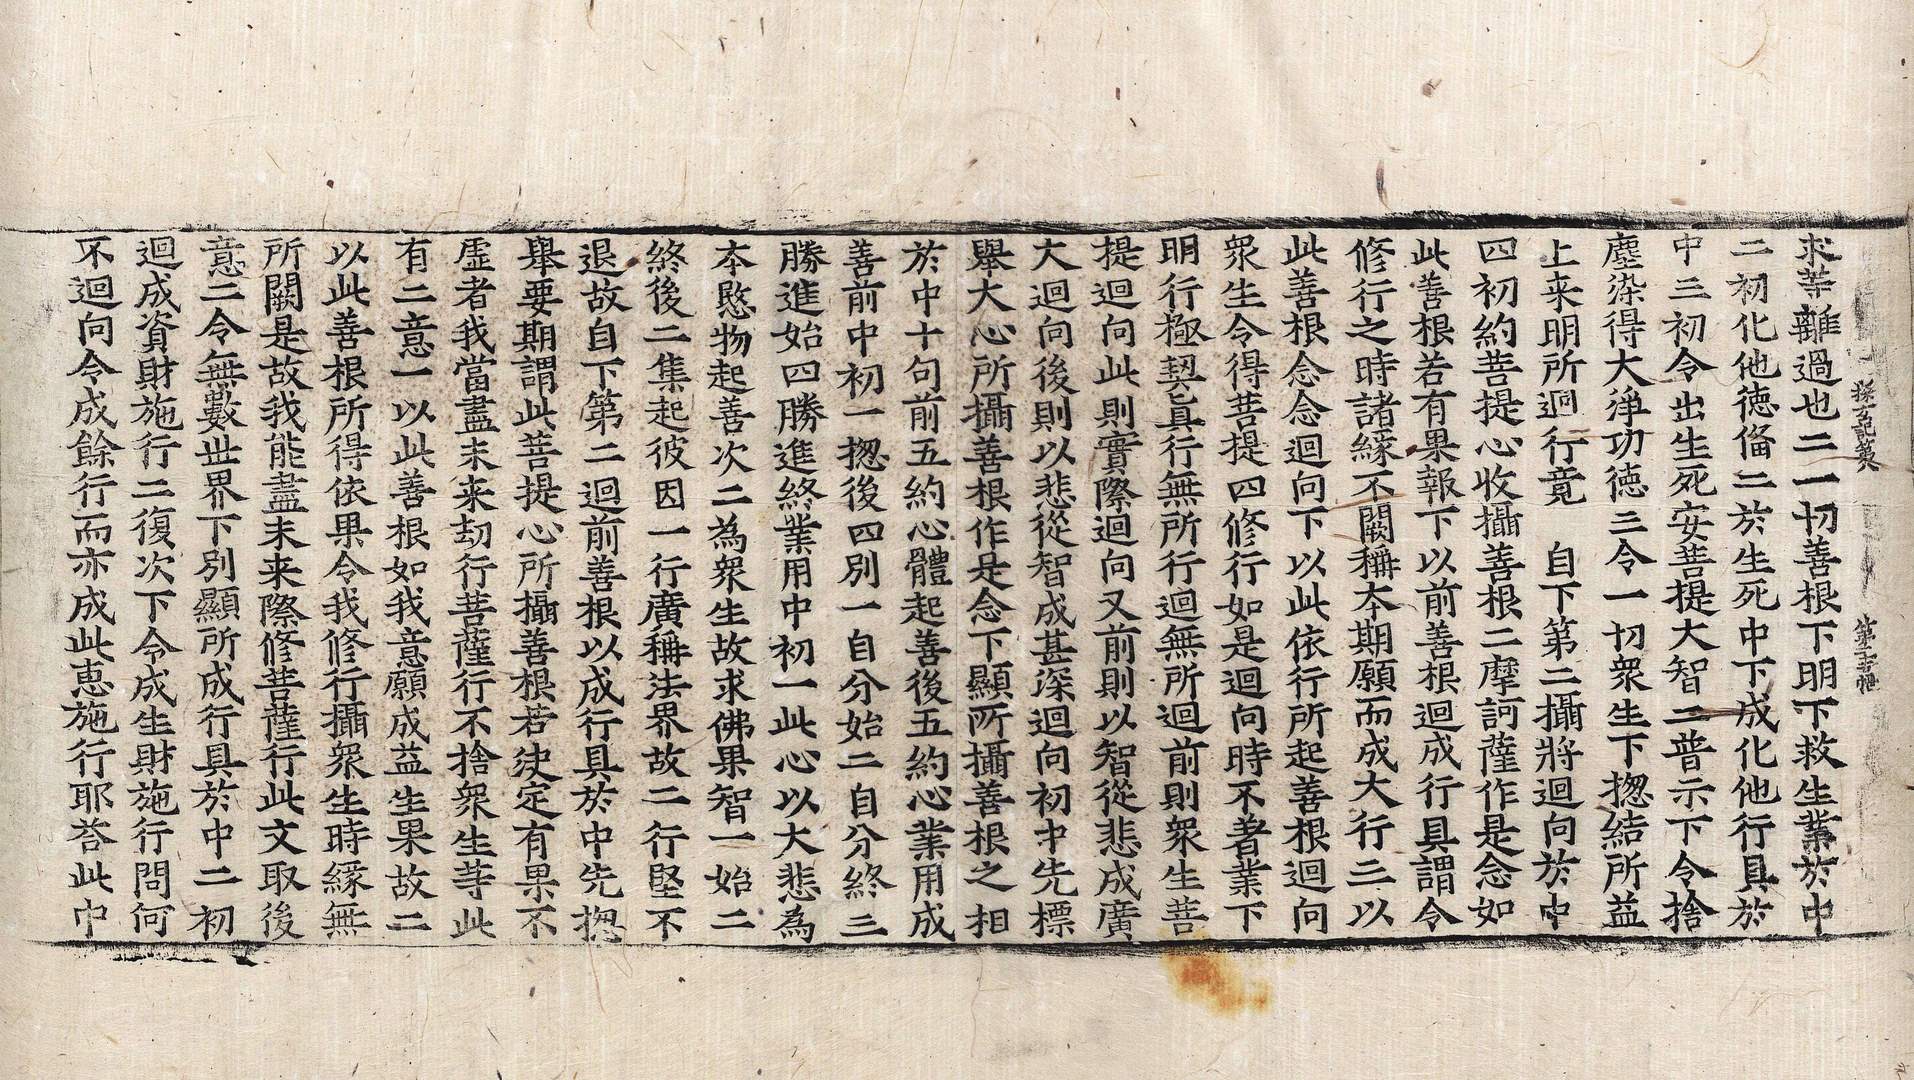 探玄記第八　第二十七幅
求等離過也二一切善根下明下救生業於中
二初化他徳俻二於生死中下成化他行具於
中三初令出生死安菩提大智二普示下令捨
塵染得大淨功徳三令一切衆生下揔結所益
上来明所迴行竟　自下第二攝將迴向於中
四初約菩提心收攝善根二摩訶薩作是念如
此善根若有果報下以前善根迴成行具謂令
修行之時諸緣不闕稱本期願而成大行三以
此善根念念迴向下以此依行所起善根迴向
衆生令得菩提四修行如是迴向時不著業下
明行極契真行無所行迴無所迴前則衆生菩
提迴向此則實際迴向又前則以智從悲成廣
大迴向後則以悲從智成甚深迴向初中先標
舉大心所攝善根作是念下顯所攝善根之相
於中十句前五約心體起善後五約心業用成
善前中初一揔後四別一自分始二自分終三
勝進始四勝進終業用中初一此心以大悲為
本愍物起善次二為衆生故求佛果智一始二
終後二集起彼因一行廣稱法界故二行堅不
退故自下第二迴前善根以成行具於中先揔
舉要期謂此菩提心所攝善根若決定有果不
虛者我當盡未来劫行菩薩行不捨衆生等此
有二意一以此善根如我意願成益生果故二
以此善根所得依果令我修行攝衆生時緣無
所闕是故我能盡未来際修菩薩行此文取後
意二令無數世界下別顯所成行具於中二初
迴成資財施行二復次下令成生財施行問何
不迴向令成餘行而亦成此恵施行耶荅此中